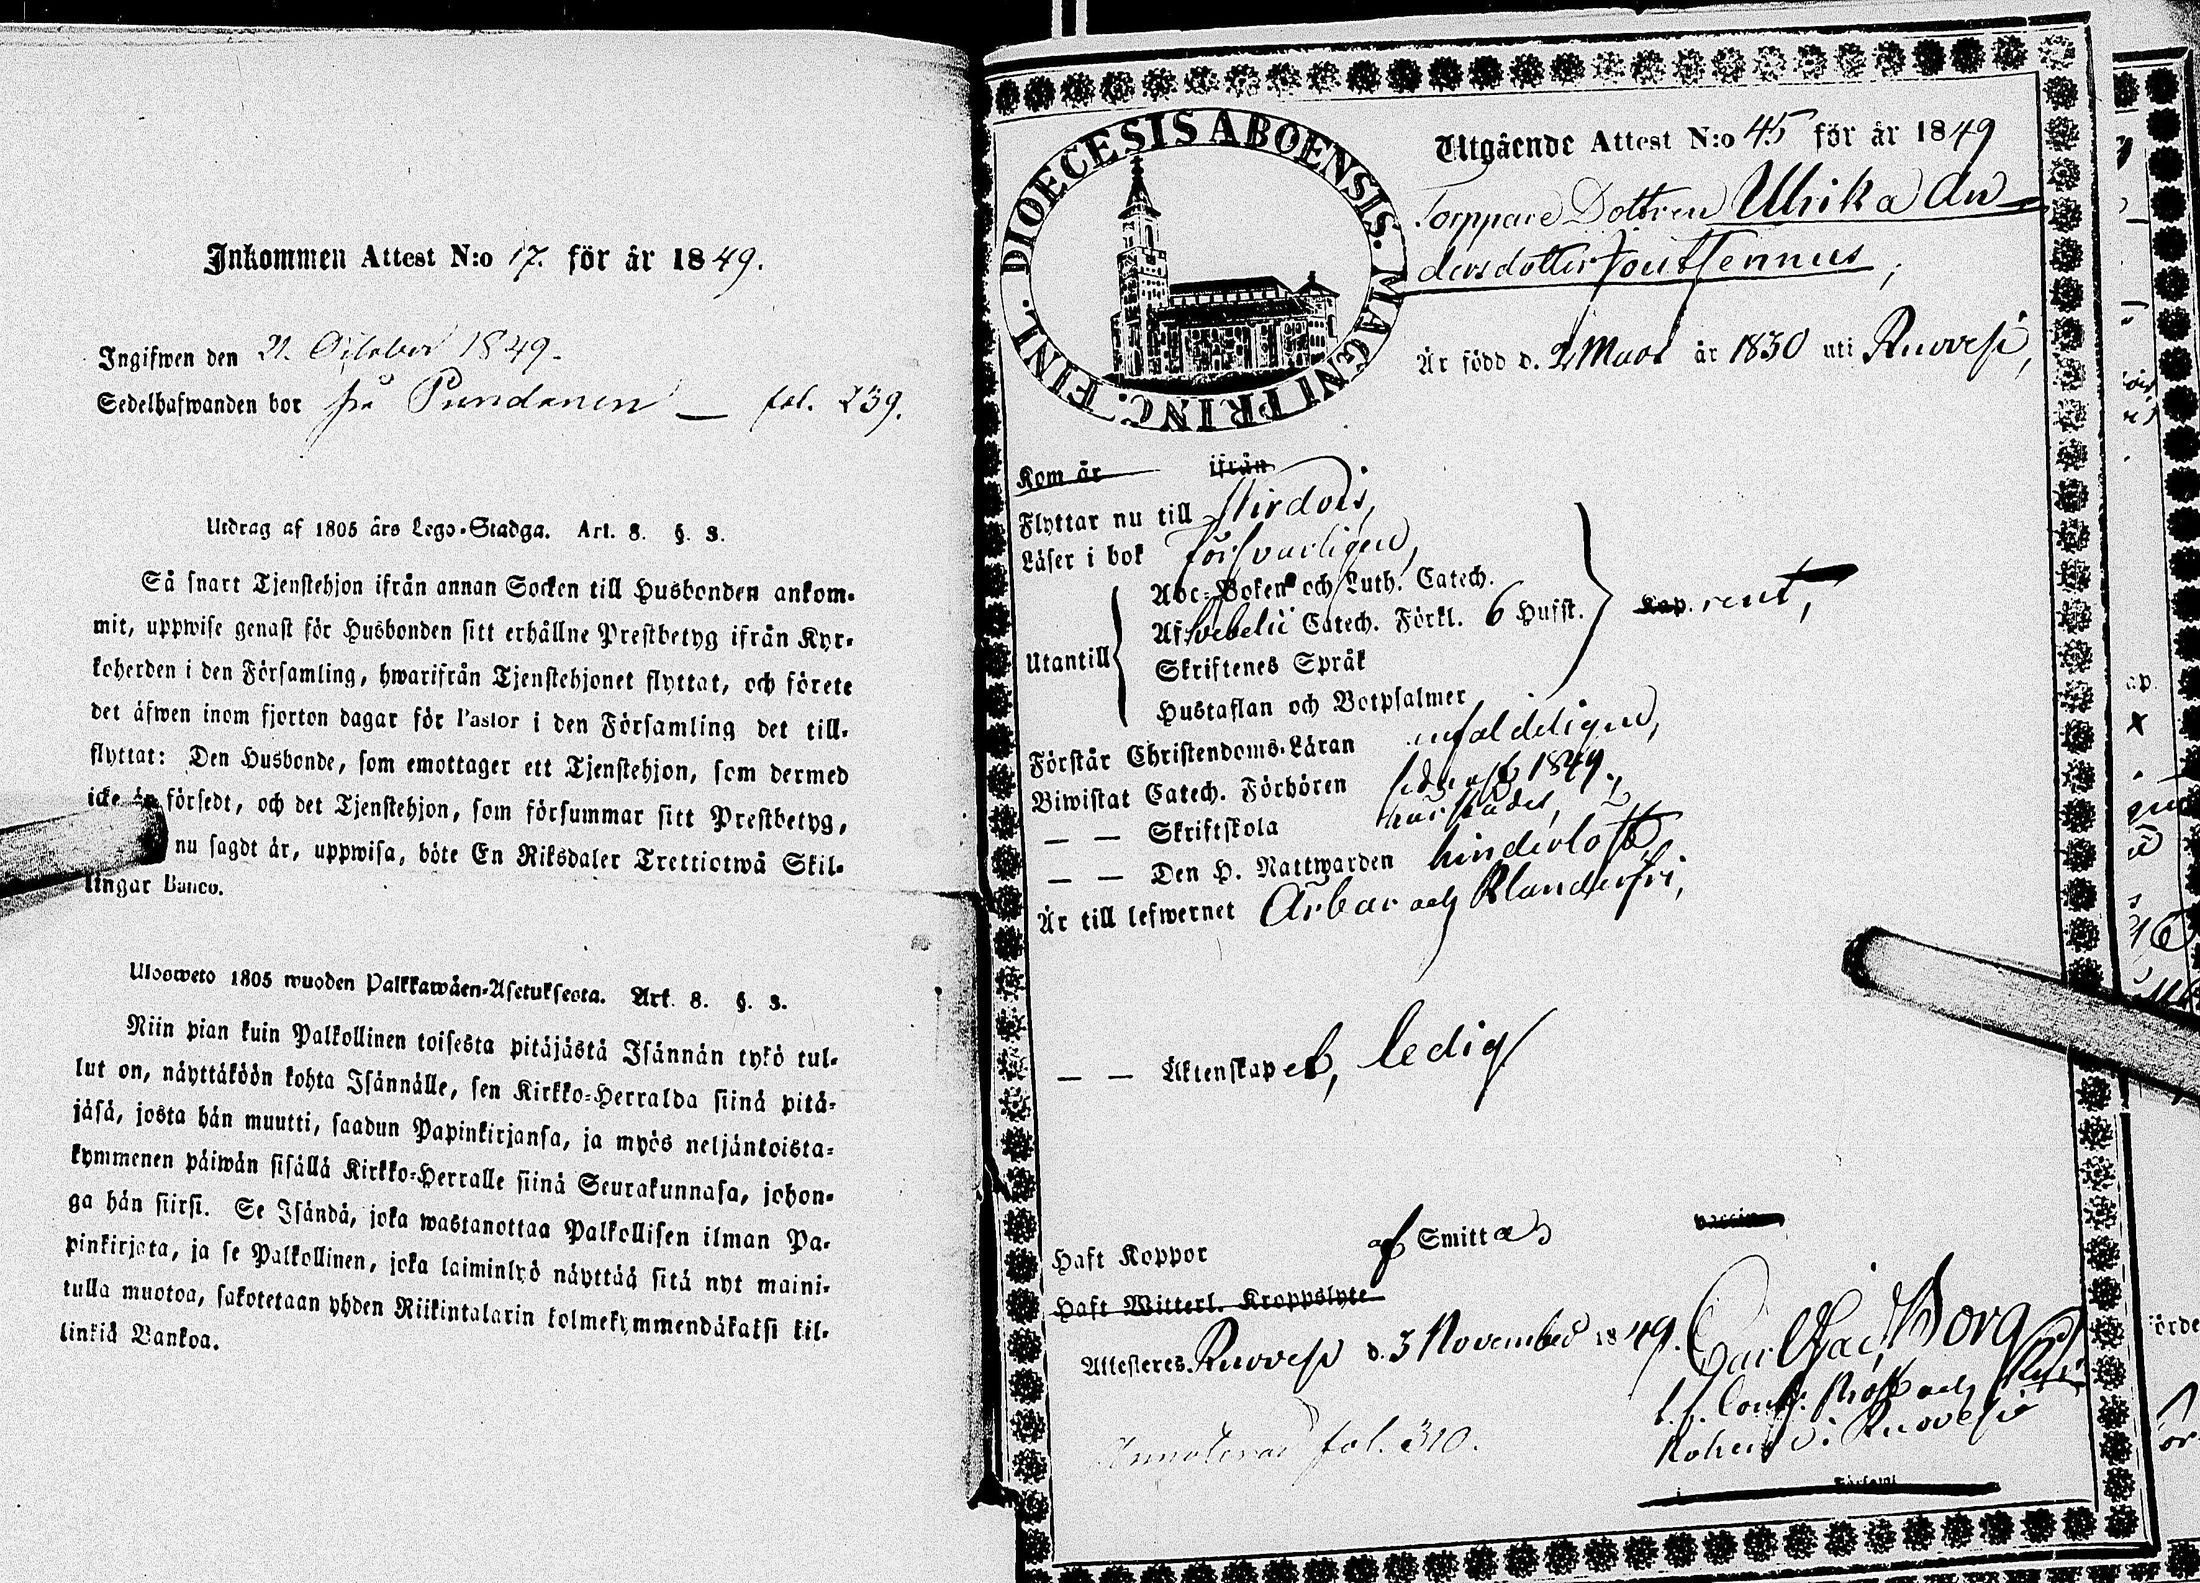 Inkommen Attest N:o 17. för år 1849.
Ingifwen den 21. October 1849.
Sedelhafwanden bor på Pundanen — fol. 239.
Utdrag af 1805 års Lego-Stadga. Art. 8. §. 3.
Så snart Tjenstehjon ifrån annan Socken till Husbonden ankom-
mit, uppwise genast för Husbonden sitt erhållne Prestbetyg ifrån Kyr-
koherden i den Församling, hwarifrån Tjenstehjonet flyttat, och förete
det äfwen inom fjorton dagar för Pastor i den Församling det till-
flyttat: Den Husbonde, som emottager ett Tjenstehjon, som dermed
icke är försedt, och det Tjenstehjon, som försummar sitt Prestbetyg,
nu sagdt är, uppwisa, böte En Riksdaler Trettiotwå Skil-
lingar Banco.
Uloosweto 1805 wuoden Palkkawäen-Asetuksesta. Art. 8. §. 3.
Niin pian kuin Palkollinen toisesta pitäjästä Isännän tykö tul-
lut on, näyttäköön kohta Isännälle, sen Kirkko-Herralda siinä pitä-
jäsä, josta hän muutti, saadun Papinkirjansa, ja myös neljäntoista-
kymmenen päiwän sisällä Kirkko-Herralle siinä Seurakunnasa, johon-
ga hän siirsi. Se Isändä, joka wastanottaa Palkollisen ilman Pa-
pinkirjata, ja se Palkollinen, joka laiminlyö näyttää sitä nyt maini-
tulla muotoa, sakotetaan yhden Riikintalarin kolmekymmendäkaksi kil-
linkiä Bankoa.
DIOECESIS ABOENSIS. MAGNI PRINC. FINL.
Utgående Attest N:o 45 för år 1849
Torppare Dottren Ulrika An-
dersdotter
Är född d. 2 Mars år 1830 uti Ruovesi,
Kom år ifrån
Flyttar nu till Wirdois,
Läser i bok försvarligen,
Utantill
Abc-Boken och Luth. Catech.
Af Svebelii Catech. Förkl. 6 Hufst.
Skriftenes Språk
Hustaflan och Botpsalmer
Kap. rent,
Förstår Christendoms-Läran enfaldeligen,
Biwistat Catech. Förhören sednast 1849.,
— — Skriftskola
— — Den H. Nattwarden hinderlöst,
Är till lefwernet Ärbar och Klanderfri,
— — Äktenskapet, ledig
Haft Koppor af Smitta
vaccin
Haft Witterl. Kroppslyte
Attesteres. Ruovesi d. 3 November 1849. Carl Borg
Prost och
i Ruovesi
Annoterad fol. 310.
i Församl